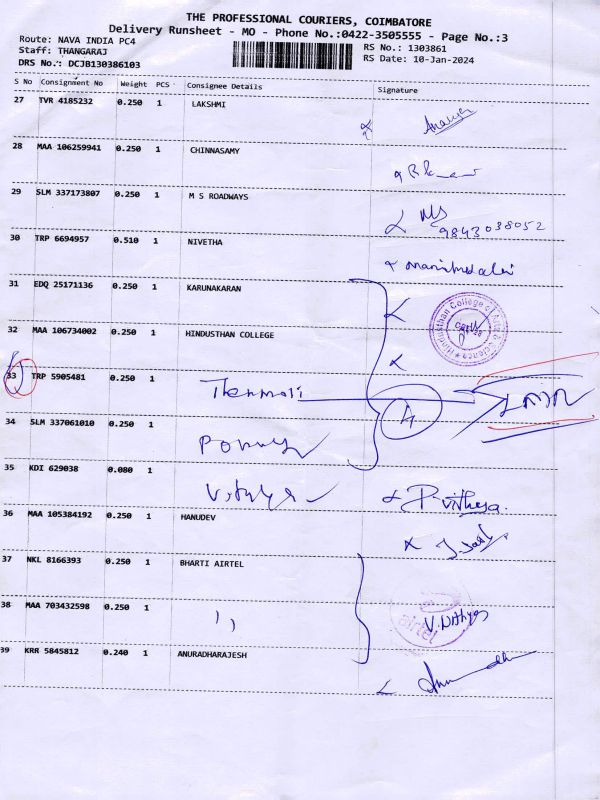 THE PROFESSIONAL COURIERS, COIMBATORE
Delivery Runsheet - MO - Phone No.:0422-3505555 - Page No.:3
Route: NAVA INDIA PC4
RS No.: 1303861
Staff: THANGARAJ
RS Date: 10-Jan-2024
DRS No.: DCJB130386103
S No Consignment No Weight PCS Consignee Details Signature
27 TVR 4185232 0.250 1 LAKSHMI
28 MAA 106259941 0.250 1 CHINNASAMY
29 SLM 337173807 0.250 1 M S ROADWAYS MS
9843038052
30 TRP 6694957 0.510 1 NIVETHA
31 EDQ 25171136 0.250 1 KARUNAKARAN
32 MAA 106734002 0.250 1 HINDUSTHAN COLLEGE
Hindusthan College of Arts & Science
33 TRP 5905481 0.250 1 Thenmoli
4
34 SLM 337061010 0.250 1
35 KDI 629038 0.080 1 Vithya P. Vithya.
36 MAA 105384192 0.250 1 HANUDEV
37 NKL 8166393 0.250 1 BHARTI AIRTEL
38 MAA 703432598 0.250 1 ,, V. Nithya
airtel
39 KRR 5845812 0.240 1 ANURADHARAJESH